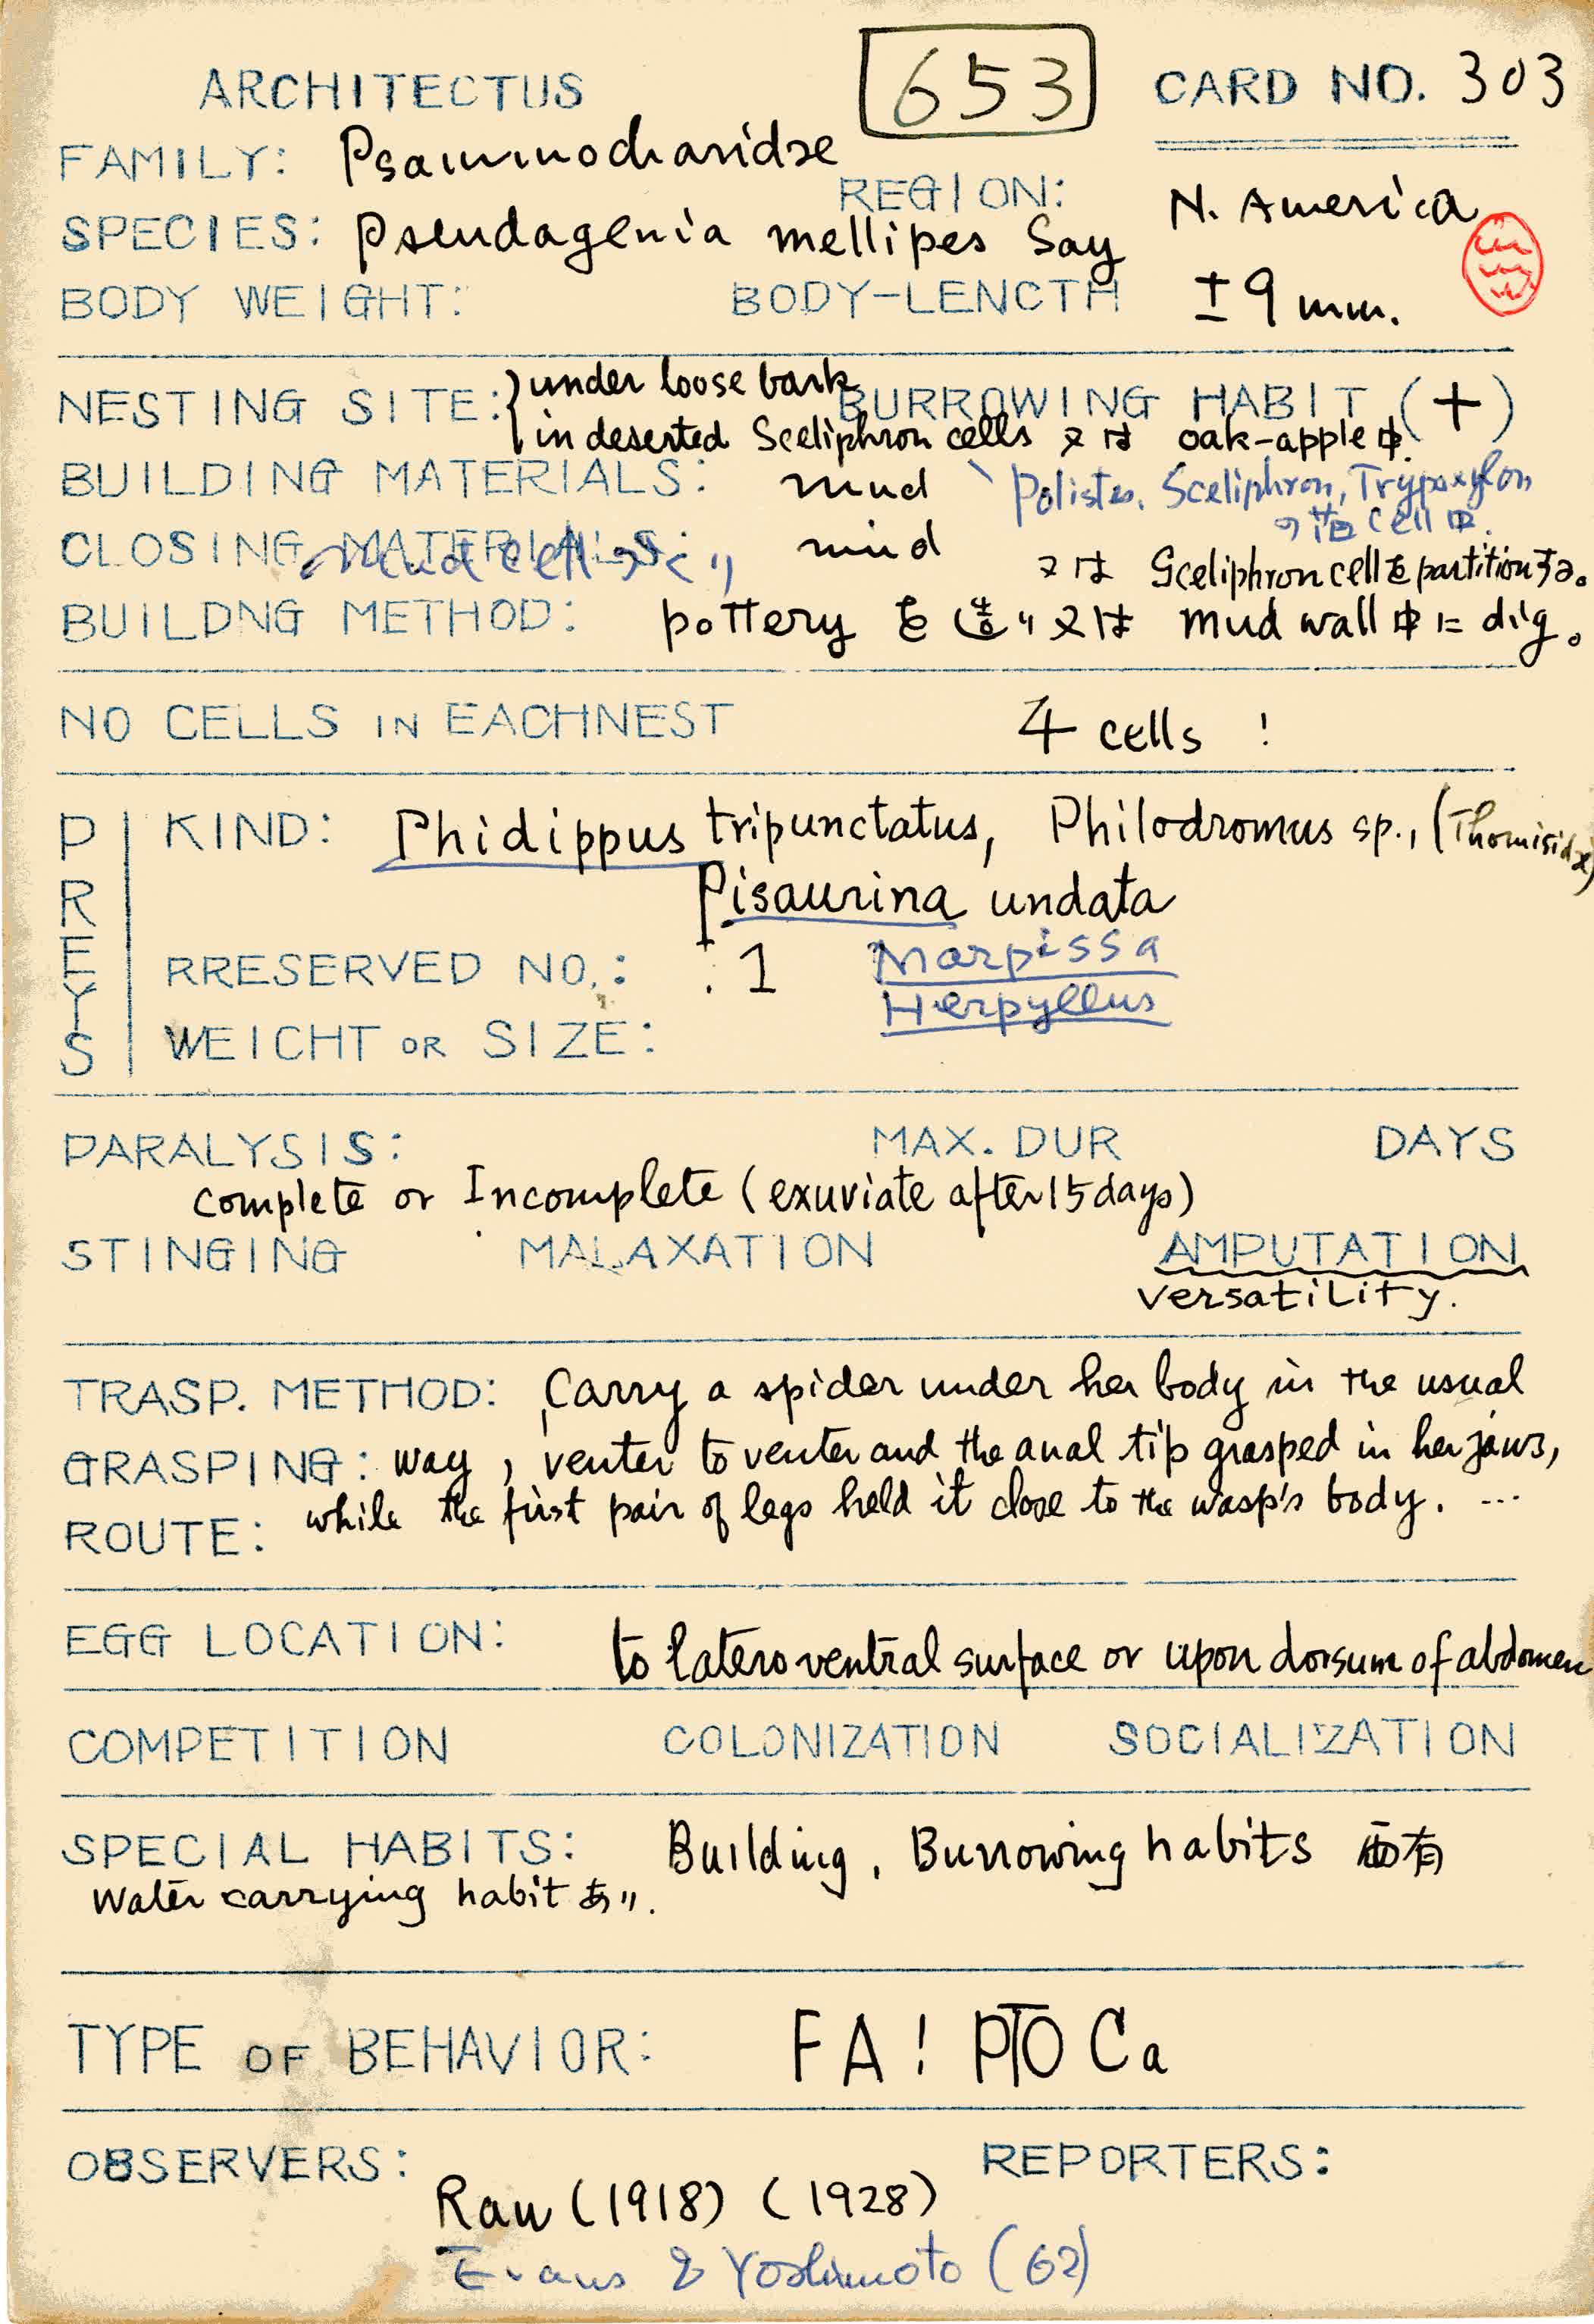 ARCHITECTUS
653
CARD NO. 303
FAMILY: Psammocharidæ
REGION: N. America
SPECIES: Pseudagenia mellipes Say
BODY WEIGHT:
BODY-LENCTH ±9 mm.
NESTING SITE: under loose bark
BURROWING HABIT (+)
in deserted Sceliphron cells 又は oak-apple中.
BUILDING MATERIALS: mud
Polistes, Sceliphron, Trypoxylon
の cell 中.
CLOSING MATERIALS: mud
mud cell
又は Sceliphron cellをpartitionする。
BUILDNG METHOD: pottery を造り又は mud wall 中に dig。
NO CELLS IN EACHNEST 4 cells !
PREYS
KIND: Phidippus tripunctatus, Philodromus sp., (Thomisidæ)
Pisaurina undata
RRESERVED NO.: 1
Marpissa
Herpyllus
WEICHT OR SIZE:
PARALYSIS: MAX. DUR DAYS
complete or Incomplete (exuviate after 15 days)
STINGING MALAXATION AMPUTATION
versatility.
TRASP. METHOD: Carry a spider under her body in the usual
GRASPING: way, venter to venter and the anal tip grasped in her jaws,
ROUTE: while the first pair of legs held it close to the wasp's body. ...
EGG LOCATION: to lateroventral surface or upon dorsum of abdomen
COMPETITION COLONIZATION SOCIALIZATION
SPECIAL HABITS: Building, Burrowing habits 両有
Water carrying habit あり.
TYPE OF BEHAVIOR: FA! PTO Ca
OBSERVERS: REPORTERS:
Rau (1918) (1928)
Evans & Yoshimoto (62)